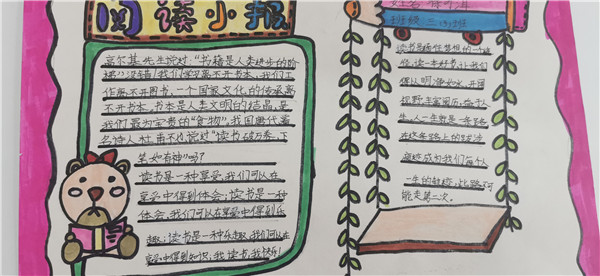 阅读小报
高尔基先生说过:"书籍是人类进步的阶
梯"!没错!我们学习离不开书本,我们工
作离不开图书,一个国家文化的传承离
不开书本。书本是人类文明的结晶,是
我们最为宝贵的"食物",我国唐代著
名诗人杜甫不也说过"读书破万卷,下
笔如有神"吗?
读书是一种享受,我们可以在
享受中得到体会;读书是一种
体会,我们可以在体会中得到乐
趣;读书是一种乐趣,我们可以在
中得到知识,我读书,我快乐!
班级:三(3)班
读书是
读一本好书,让我们
得以明净如水,开阔
视野,丰富阅历,益于人
生。人一生就是一条路
在这条路上的跋涉
痕迹成为我们每个人
一生的轨迹,此路不可
能走第二次。